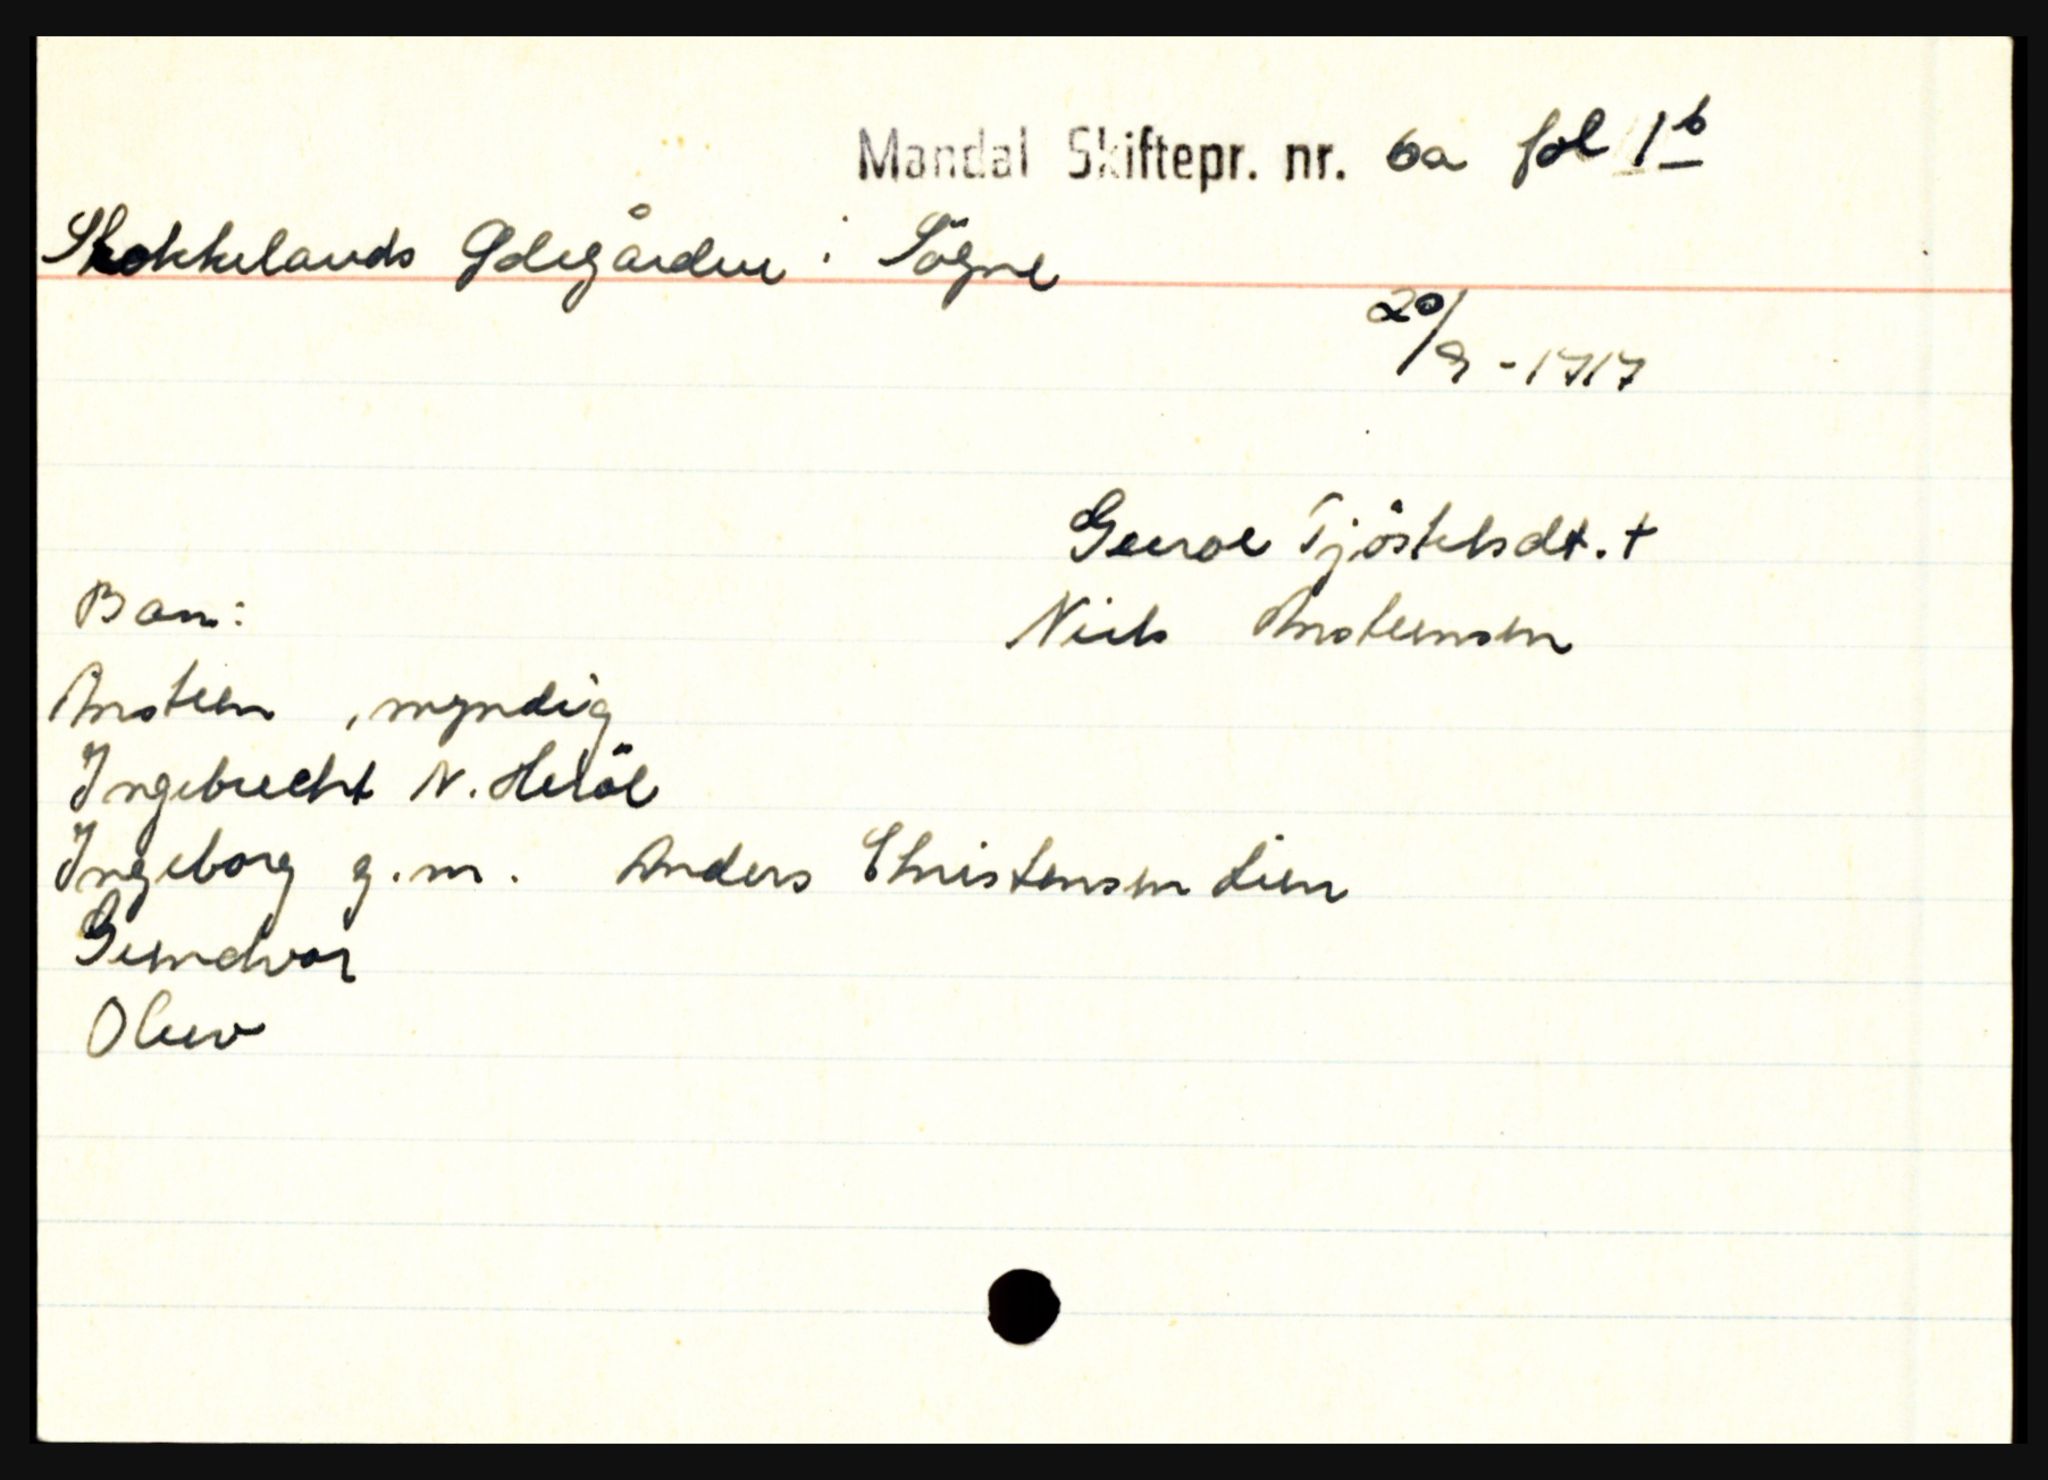 Mandal Skiftepr. nr. 6a fol 1b
Stokkelands Ödegården i Sögne
20/9-1717
Guroe Tjöstelsdt. †
Barn:
Niels Ansteensen
Ansteen, myndig
Ingebrecht N. Helöe
Ingeborg g.m. Anders Christensen Lien
Gundvor
Oluv